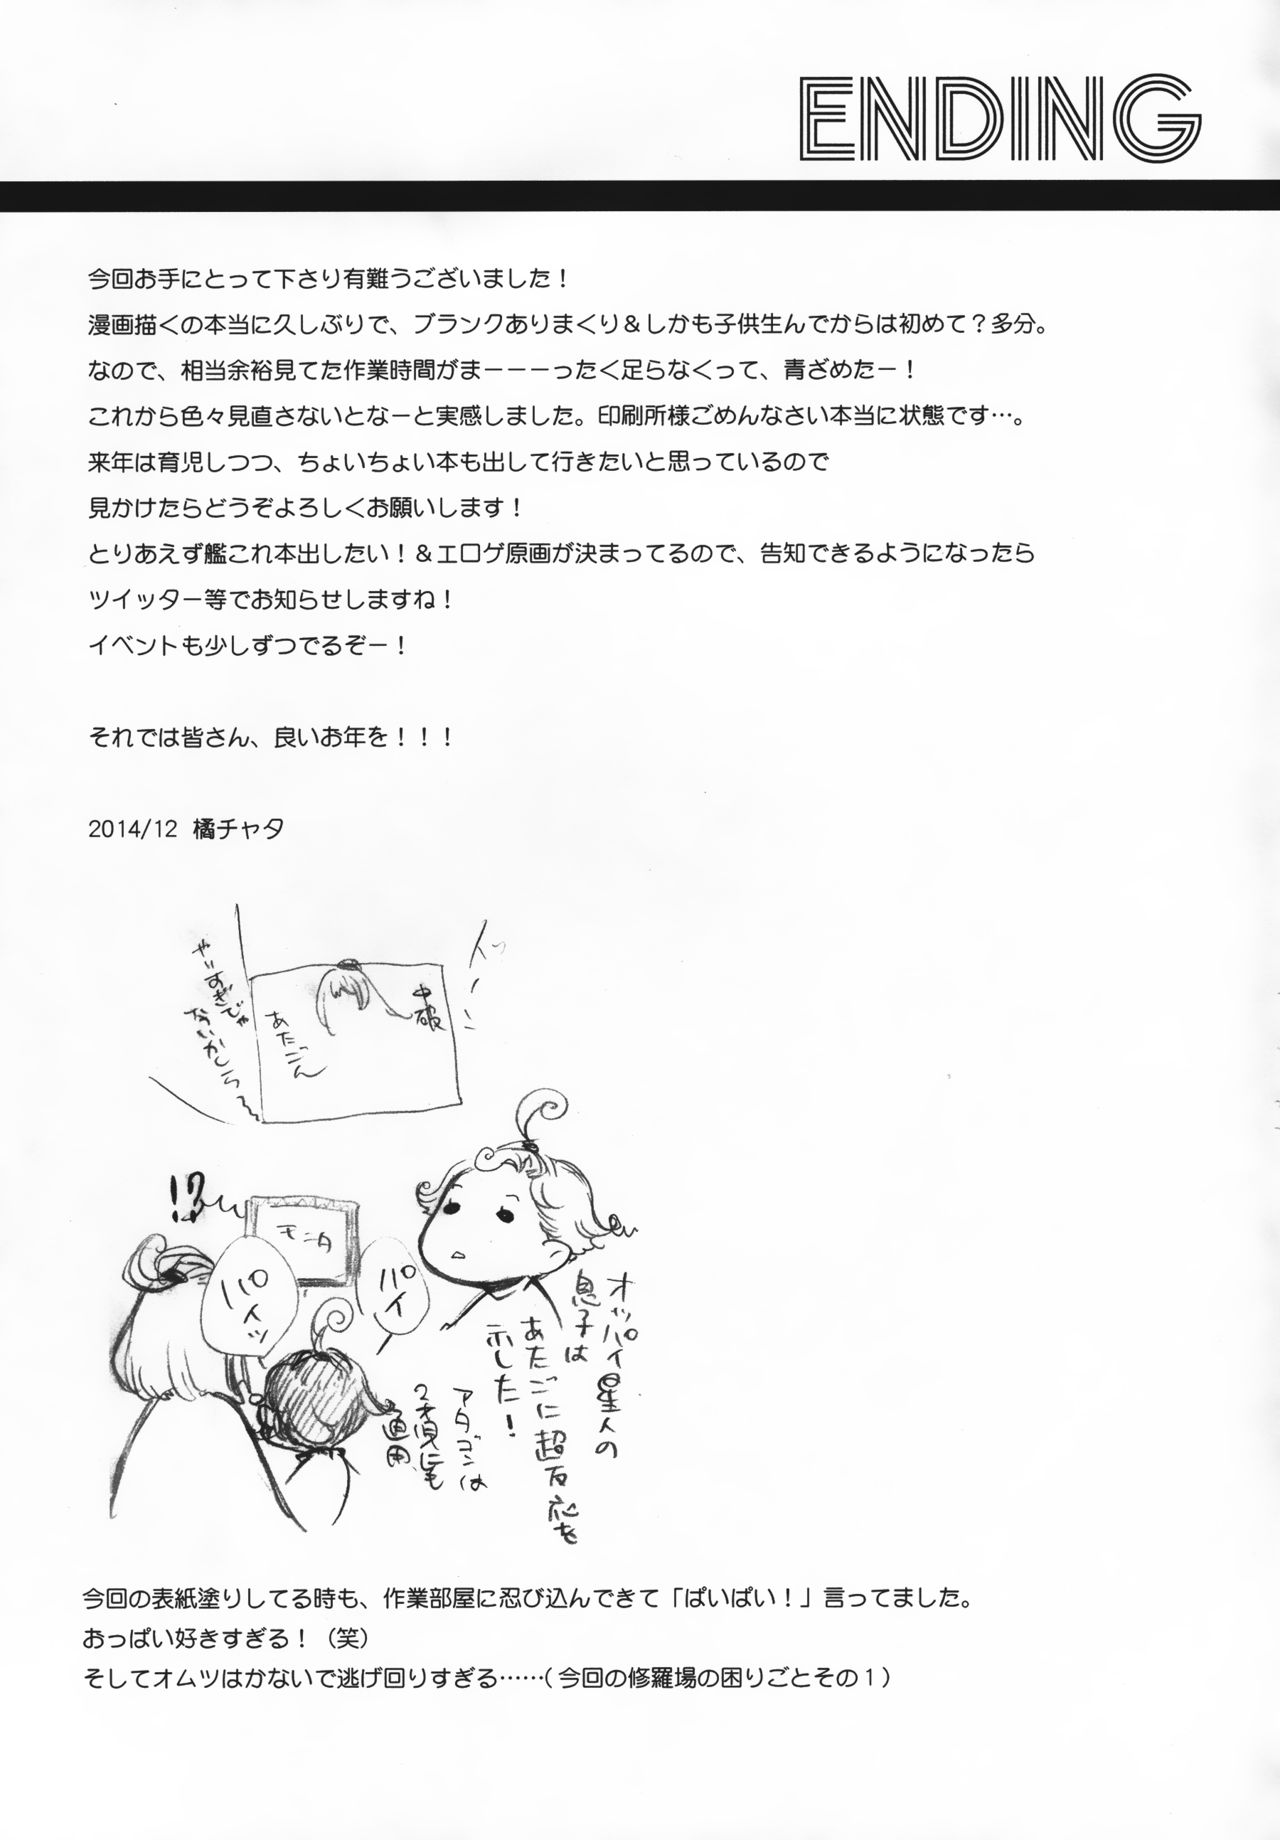 ENDING
今回お手にとって下さり有難うございました！
漫画描くの本当に久しぶりで、ブランクありまくり＆しかも子供生んでからは初めて？多分。
なので、相当余裕見てた作業時間がまーーーったく足らなくって、青ざめたー！
これから色々見直さないとなーと実感しました。印刷所様ごめんなさい本当に状態です…。
来年は育児しつつ、ちょいちょい本も出して行きたいと思っているので
見かけたらどうぞよろしくお願いします！
とりあえず艦これ本出したい！＆エロゲ原画が決まってるので、告知できるようになったら
ツイッター等でお知らせしますね！
イベントも少しずつでるぞー！
それでは皆さん、良いお年を！！！
2014/12 橘チャタ
中破
あたごん
やりすぎじゃ
ないかしら～
!?
モニタ
パイ
パイッ
オッパイ星人の
息子は
あたごに超反応を
示した！
アタゴンは
2才児にも
通用、
今回の表紙塗りしてる時も、作業部屋に忍び込んできて「ぱいぱい！」言ってました。
おっぱい好きすぎる！（笑）
そしてオムツはかないで逃げ回りすぎる……（今回の修羅場の困りごとその１）